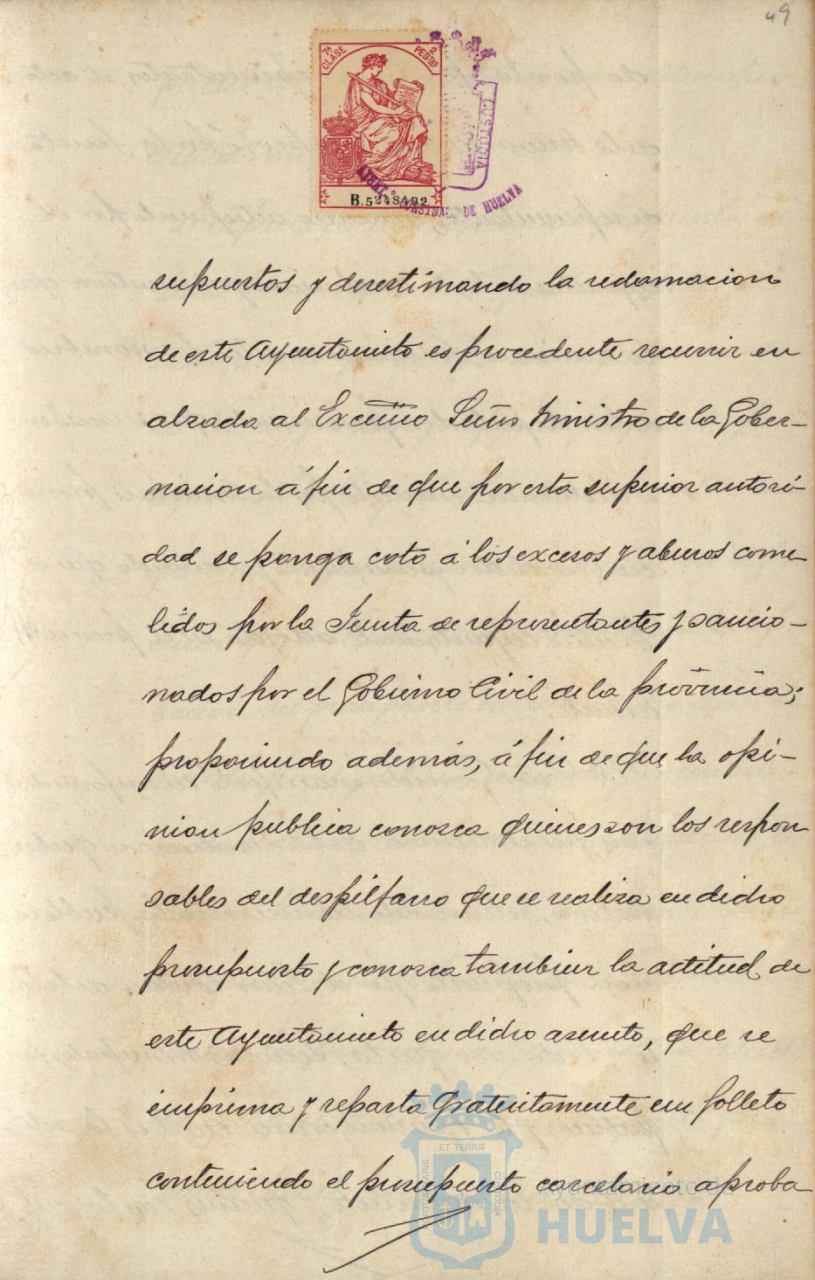 49
7ª CLASE
2 PESTAS
B.5248492
CUSTODIA
DE HUELVA
supuestos y desestimando la reclamacion
de este Ayuntamiento es procedente recurrir en
alzada al Excmo Señor Ministro de la Gober-
nacion á fin de que por esta superior autori-
dad se ponga coto á los excesos y abusos come
tidos por la Junta de representantes y sancio-
nados por el Gobierno Civil de la provincia;
proponiendo además, á fin de que la opi-
nion publica conosca quienes son los respon
sables del despilfarro que se realiza en dicho
presupuesto y conosca tambien la actitud de
este Ayuntamiento en dicho asunto, que se
imprima y reparta gratuitamente un folleto
conteniendo el presupuesto carcelario aproba
ET TERRÆ
Ayuntamiento de
HUELVA